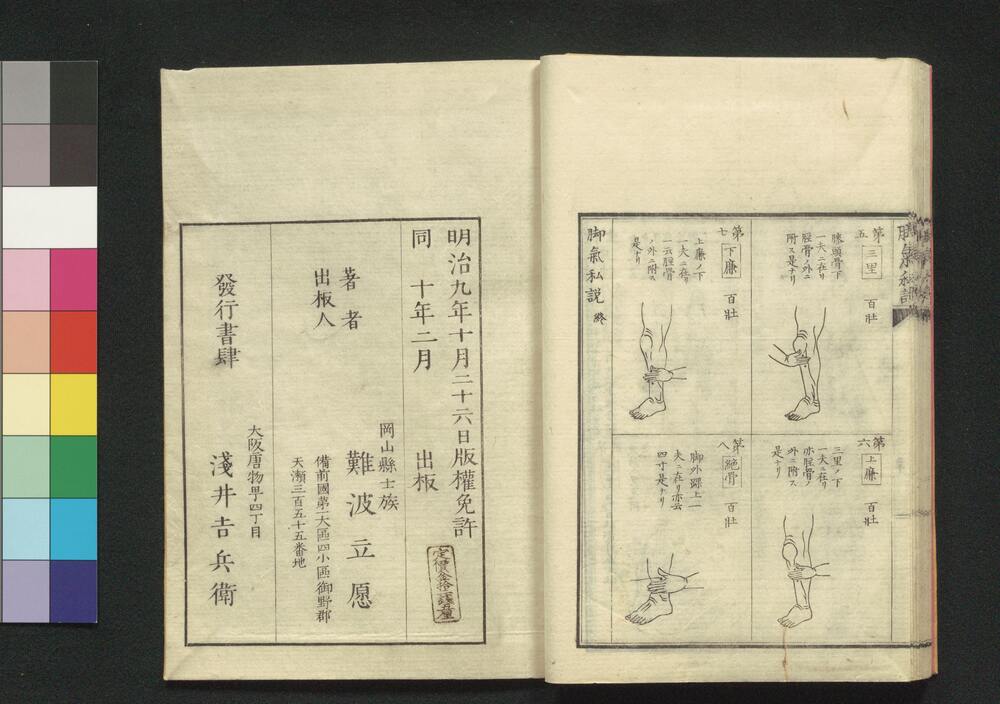 脚氣私説
第五
三里
百壯
膝頭骨下
一夫ニ在リ
脛骨ノ外ニ
附ス是ナリ
第六
上廉
百壯
三里ノ下
一夫ニ在リ
亦脛骨ノ
外ニ附ス
是ナリ
第七
下廉
百壯
上廉ノ下
一夫ニ在リ
一云脛骨
ノ外ニ附ス
是ナリ
第八
絶骨
百壯
脚外踝上一
夫ニ在リ亦云
四寸是ナリ
脚氣私説 終
明治九年十月二十六日版權免許
同 十年二月 出板
定價金拾
著者
出板人
岡山縣士族
難波立愿
備前國第二大區四小區御野郡
天瀬三百五十五番地
發行書肆
大阪唐物町四丁目
淺井吉兵衛